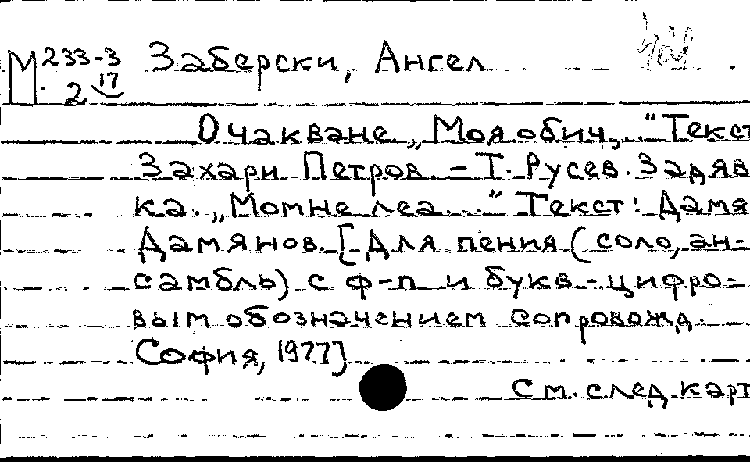 М 233-3 Заберски, Ангел
2 17
Очакване „Моя обич,.." Текст
Захари Петров - Т. Русев. Задяв
ка. „Момне леа..." Текст: Дамя
Дамянов. [Для пения (соло, ан-
самбль) с ф-п и букв.-цифро-
вым обозначением сопровожд.
София, 1977]
См. след. карт